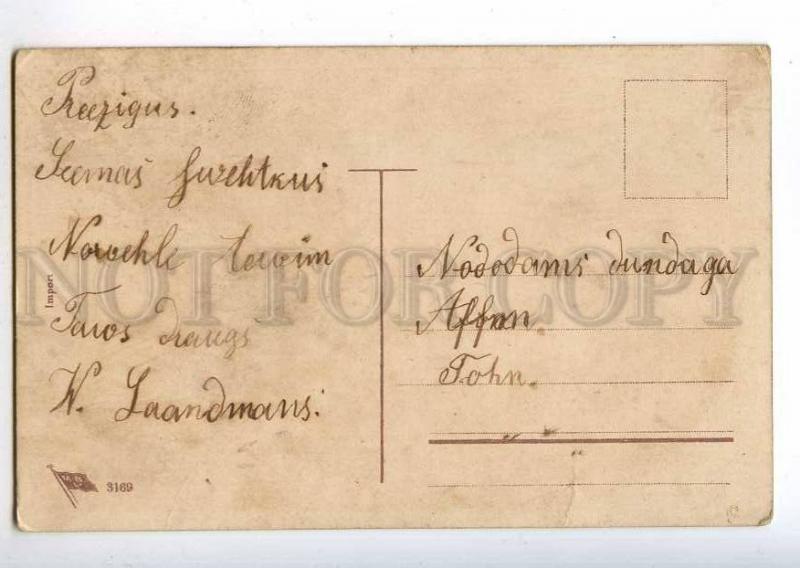 Reezigus.
Seemas swehtkus
Nowehle tewim
Taws draugs
W. Laandmans.
Nododams dundaga
Affern.
Tohn.
Import
3169
NOT FOR COPY